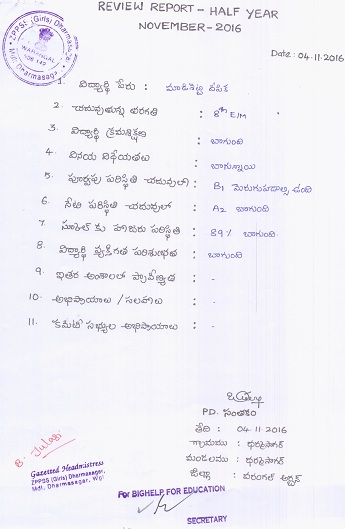 REVIEW REPORT - HALF YEAR
NOVEMBER - 2016
ZPPSS (Girls) Dharmasagar
WARANGAL
506 142
Mdl. Dharmasagar
Date: 04.11.2016
1. విద్యార్థి పేరు : మాడిశెట్టి దీపిక
2. చదువుతున్న తరగతి : 8th E/M
3. విద్యార్థి క్రమశిక్షణ : బాగుంది
4. వినయ విధేయతలు : బాగున్నాయి
5. పూర్వపు పరిస్థితి చదువులో : B1 మెరుగుపడాల్సి ఉంది
6. నేటి పరిస్థితి చదువులో : A2 బాగుంది
7. స్కూల్ కు హాజరు పరిస్థితి : 89% బాగుంది
8. విద్యార్థి వ్యక్తిగత పరిశుభ్రత : బాగుంది
9. ఇతర అంశాలలో ప్రావీణ్యత : -
10. అభిప్రాయాలు / సలహాలు : -
11. కమిటీ సభ్యుల అభిప్రాయాలు : -
P.D. సంతకం
తేది : 04.11.2016
గ్రామము : ధర్మసాగర్
మండలము : ధర్మసాగర్
జిల్లా : వరంగల్ అర్బన్
Gazetted Headmistress
ZPPSS (Girls) Dharmasagar,
Mdl. Dharmasagar, Wgl
For BIGHELP FOR EDUCATION
SECRETARY